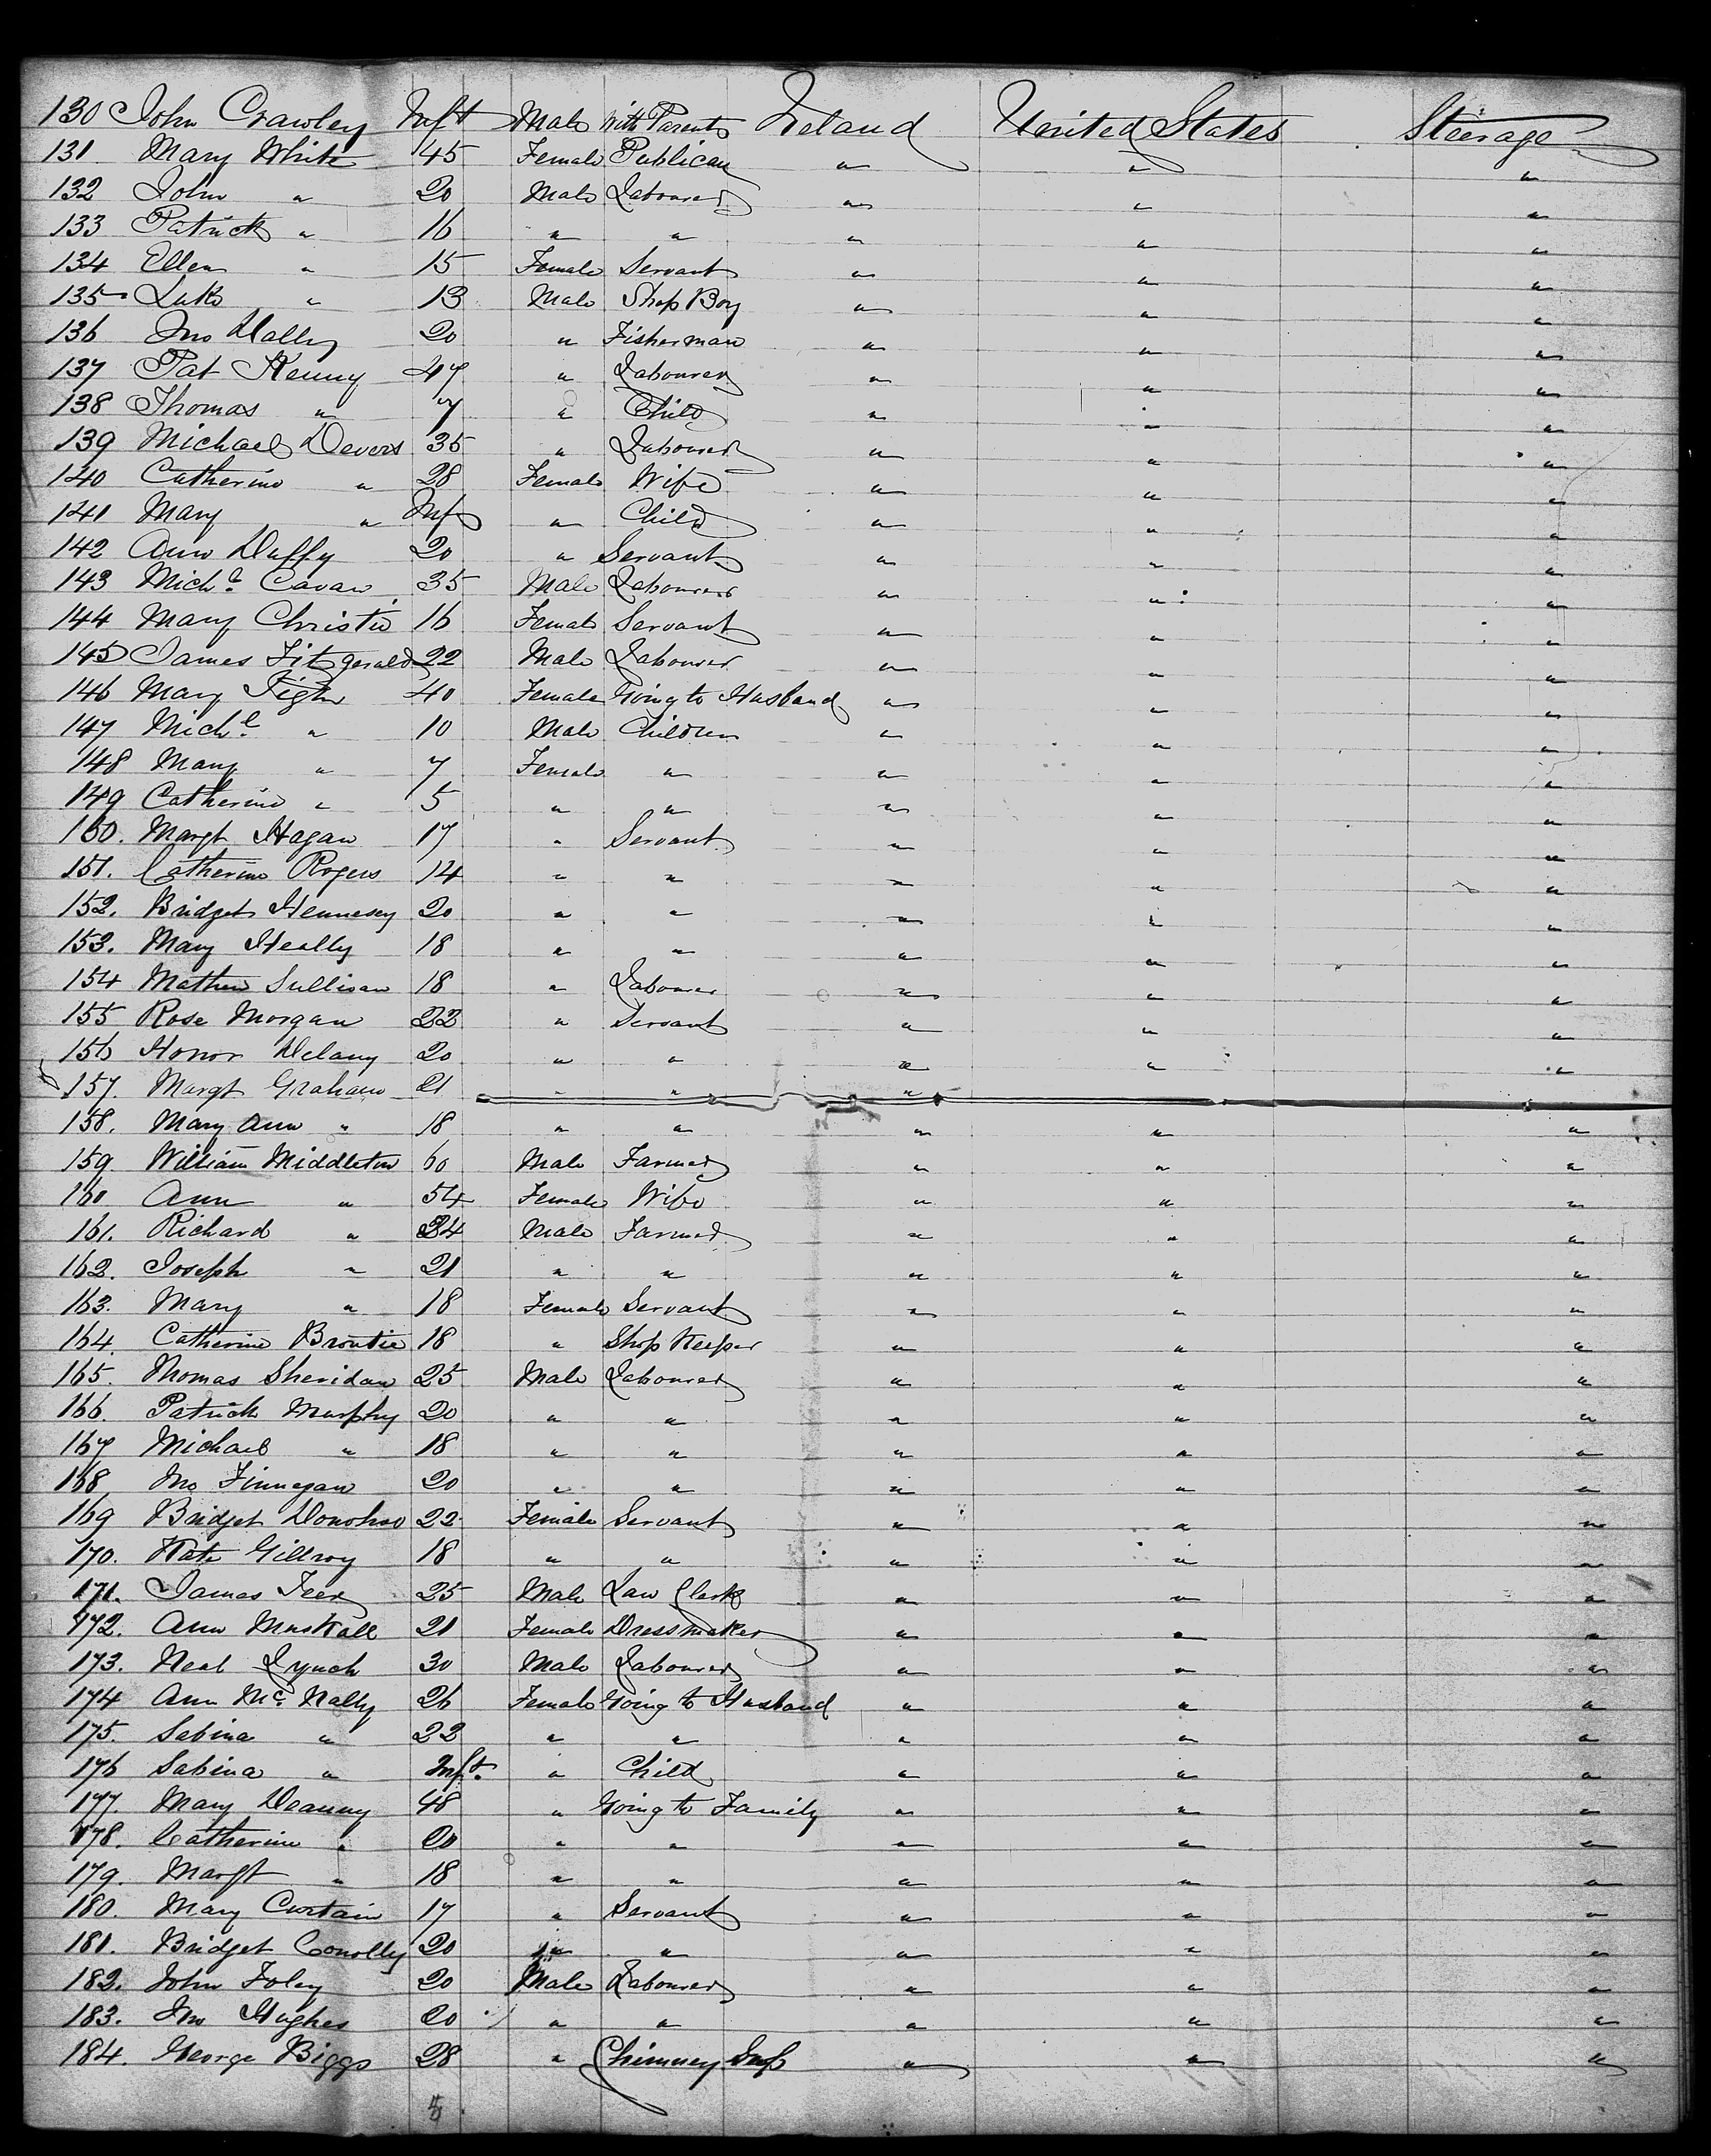 130 John Crawley Inft Male With Parents Ireland United States Steerage
131 Mary White 45 Female Publican " " "
132 John " 20 Male Labourer " " "
133 Patrick " 16 " " " " "
134 Ellen " 15 Female Servant " " "
135 Luke " 13 Male Shop Boy " " "
136 Jno Dally 20 " Fisherman " " "
137 Pat Kenny 47 " Labourer " " "
138 Thomas " 7 " Child " " "
139 Michael Devers 35 " Labourer " " "
140 Catherine " 28 Female Wife " " "
141 Mary " Inf " Child " " "
142 Ann Duffy 20 " Servant " " "
143 Michl Cavan 35 Male Labourer " " "
144 Mary Christie 16 Female Servant " " "
145 James Fitzgerald 22 Male Labourer " " "
146 Mary Tighe 40 Female Going to Husband " " "
147 Michl " 10 Male Children " " "
148 Mary " 7 Female " " " "
149 Catherine " 5 " " " " "
150. Margt Hagan 17 " Servant " " "
151. Catherine Rogers 14 " " " " "
152. Bridget Hennesey 20 " " " " "
153. Mary Heally 18 " " " " "
154 Mathew Sullivan 18 " Labourer " " "
155 Rose Morgan 22 " Servant " " "
156 Honor Delany 20 " " " " "
157. Margt Graham 21 " " "
158. Mary Ann " 18 " " " " "
159. William Middleton 60 Male Farmer " " "
160 Ann " 54 Female Wife " " "
161. Richard " 24 Male Farmer " " "
162. Joseph " 21 " " " " "
163. Mary " 18 Female Servant " " "
164. Catherine Brontie 18 " Shop Keeper " " "
165. Thomas Sheridan 25 Male Labourer " " "
166. Patrick Murphy 20 " " " " "
167 Michael " 18 " " " " "
168 Jno Finnegan 20 " " " " "
169 Bridget Donohoe 22 Female Servant " " "
170. Kate Gillroy 18 " " " " "
171. James Teer 25 Male Law Clerk " " "
172. Ann Muskall 21 Female Dressmaker " " "
173. Neal Lynch 30 Male Labourer " " "
174 Ann McNally 26 Female Going to Husband " " "
175. Sabina " 22 " " " " "
176 Sabina " Inft. " Child " " "
177. Mary Deanny 48 " Going to Family " " "
178. Catherine " 20 " " " " "
179. Margt " 18 " " " " "
180. Mary Curtain 17 " Servant " " "
181. Bridget Conolly 20 " " " " "
182. John Foley 20 Male Labourer " " "
183. Jno Hughes 20 " " " " "
184. George Biggs 28 " Chimney Swp " " "